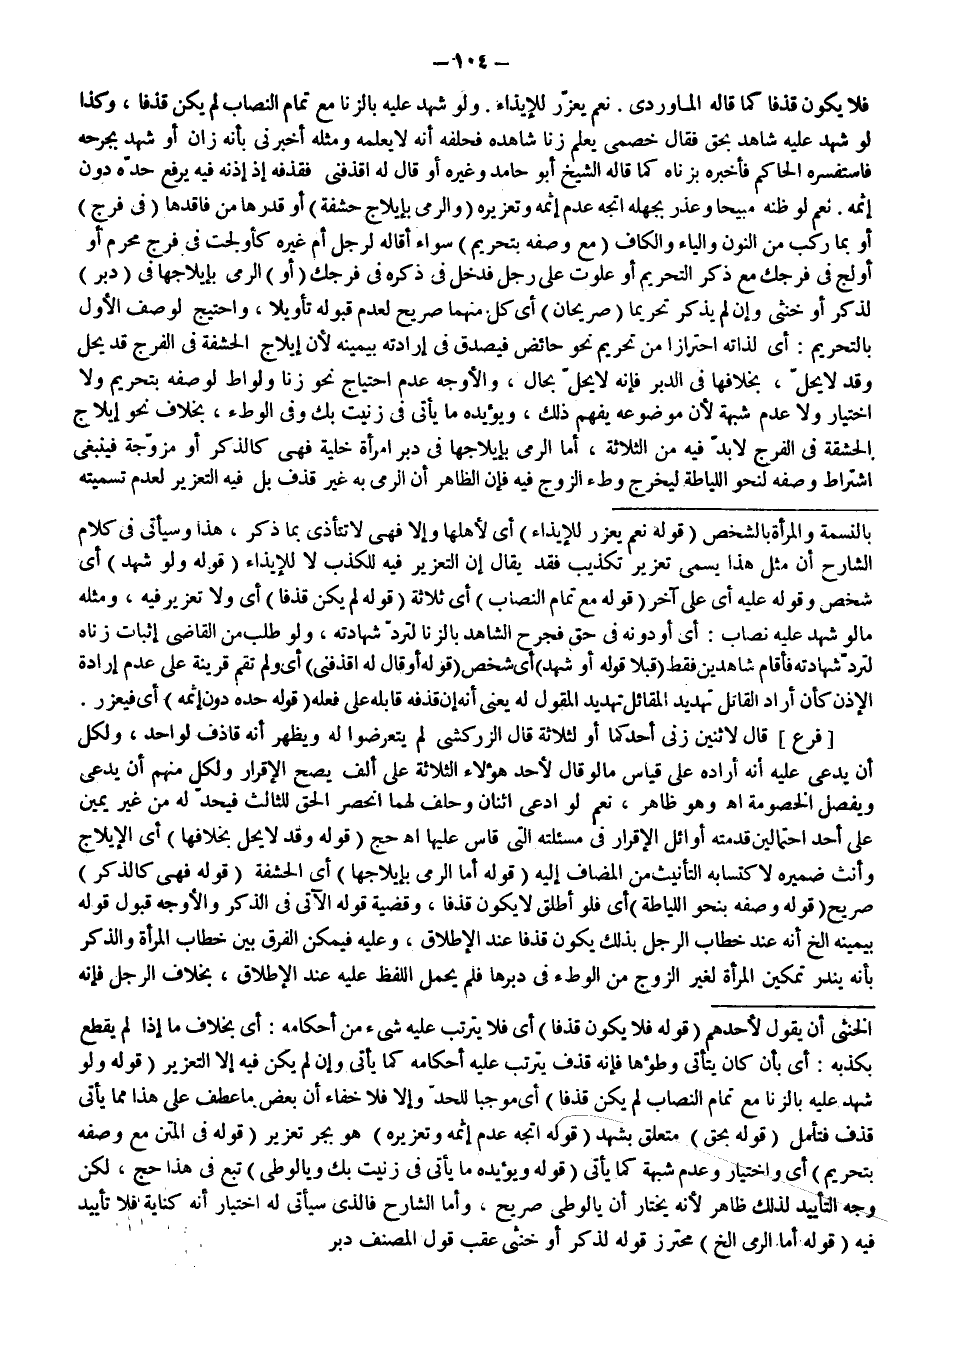 – ١٠٤ –
فلا يكون قذفا كما قاله الماوردى . نعم يعزّر للإيذاء . ولو شهد عليه بالزنا مع تمام النصاب لم يكن قذفا ، وكذا
لو شهد عليه شاهد بحق فقال خصمى يعلم زنا شاهده فحلفه أنه لا يعلمه ومثله أخبرنى بأنه زان أو شهد بجرحه
فاستفسره الحاكم فأخبره بزناه كما قاله الشيخ أبو حامد وغيره أو قال له اقذفنى فقذفه إذ إذنه فيه يرفع حدّه دون
إثمه . نعم لو ظنه مبيحا وعذر بجهله اتجه عدم إثمه وتعزيره ( والرمى بإيلاج حشفة ) أو قدرها من فاقدها ( فى فرج )
أو بما ركب من النون والياء والكاف ( مع وصفه بتحريم ) سواء أقاله لرجل أم غيره كأولجت فى فرج محرم أو
أولج فى فرجك مع ذكر التحريم أو علوت على رجل فدخل فى ذكره فى فرجك ( أو ) الرمى بإيلاجها فى ( دبر )
لذكر أو خنثى وإن لم يذكر تحريما ( صريحان ) أى كل منهما صريح لعدم قبوله تأويلا ، واحتيج لوصف الأول
بالتحريم : أى لذاته احترازا من تحريم نحو حائض فيصدق فى إرادته بيمينه لأن إيلاج الحشفة فى الفرج قد يحل
وقد لا يحلّ ، بخلافها فى الدبر فإنه لا يحلّ بحال ، والأوجه عدم احتياج نحو زنا ولواط لوصفه بتحريم ولا
اختيار ولا عدم شبهة لأن موضوعه يفهم ذلك ، ويؤيده ما يأتى فى زنيت بك وفى الوطء ، بخلاف نحو إيلاج
الحشفة فى الفرج لابدّ فيه من الثلاثة ، أما الرمى بإيلاجها فى دبر امرأة خلية فهى كالذكر أو مزوّجة فينبغى
اشتراط وصفه لنحو اللياطة ليخرج وطء الزوج فيه فإن الظاهر أن الرمى به غير قذف بل فيه التعزير لعدم تسميته
بالنسمة والمرأة بالشخص ( قوله نعم يعزر للإيذاء ) أى لأهلها وإلا فهى لا تتأذى بما ذكر ، هذا وسيأتى فى كلام
الشارح أن مثل هذا يسمى تعزير تكذيب فقد يقال إن التعزير فيه للكذب لا للإيذاء ( قوله ولو شهد ) أى
شخص وقوله عليه أى على آخر ( قوله مع تمام النصاب ) أى ثلاثة ( قوله لم يكن قذفا ) أى ولا تعزير فيه ، ومثله
مالو شهد عليه نصاب : أى أو دونه فى حق فجرح الشاهد بالزنا لتردّ شهادته ، ولو طلب من القاضى إثبات زناه
لتردّ شهادته فأقام شاهدين فقط ( قبلا قوله أو شهد ) أى شخص ( قوله أو قال له اقذفنى ) أى ولم تقم قرينة على عدم إرادة
الإذن كأن أراد القائل تهديد المقائل تهديد المقول له يعنى أنه إن قذفه قابله على فعله ( قوله حده دون إثمه ) أى فيعزر .
[ فرع ] قال لاثنين زنى أحدكما أو لثلاثة قال الزركشى لم يتعرضوا له ويظهر أنه قاذف لواحد ، ولكل
أن يدعى عليه أنه أراده على قياس مالو قال لأحد هؤلاء الثلاثة على ألف يصح الإقرار ولكل منهم أن يدعى
ويفصل الخصومة اه وهو ظاهر ، نعم لو ادعى اثنان وحلف لهما انحصر الحق للثالث فيحدّ له من غير يمين
على أحد احتمالين قدمته أوائل الإقرار فى مسئلته التى قاس عليها اه حج ( قوله وقد لا يحل بخلافها ) أى الإيلاج
وأنث ضميره لاكتسابه التأنيث من المضاف إليه ( قوله أما الرمى بإيلاجها ) أى الحشفة ( قوله فهى كالذكر )
صريح ( قوله وصفه بنحو اللياطة ) أى فلو أطلق لا يكون قذفا ، وقضية قوله الآتى فى الذكر والأوجه قبول قوله
بيمينه الخ أنه عند خطاب الرجل بذلك يكون قذفا عند الإطلاق ، وعليه فيمكن الفرق بين خطاب المرأة والذكر
بأنه يندر تمكين المرأة لغير الزوج من الوطء فى دبرها فلم يحمل اللفظ عليه عند الإطلاق ، بخلاف الرجل فإنه
الخنثى أن يقول لأحدهم ( قوله فلا يكون قذفا ) أى فلا يترتب عليه شىء من أحكامه : أى بخلاف ما إذا لم يقطع
بكذبه : أى بأن كان يتأتى وطؤها فإنه قذف يترتب عليه أحكامه كما يأتى وإن لم يكن فيه إلا التعزير ( قوله ولو
شهد عليه بالزنا مع تمام النصاب لم يكن قذفا ) أى موجبا للحدّ وإلا فلا خفاء أن بعض ما عطف على هذا مما يأتى
قذف فتأمل ( قوله بحق ) متعلق بشهد ( قوله اتجه عدم إثمه وتعزيره ) هو بجر تعزير ( قوله فى المتن مع وصفه
بتحريم ) أى واختيار وعدم شبهة كما يأتى ( قوله ويؤيده ما يأتى فى زنيت بك ويالوطى ) تبع فى هذا حج ، لكن
وجه التأييد لذلك ظاهر لأنه يختار أن يالوطى صريح ، وأما الشارح فالذى سيأتى له اختيار أنه كناية فلا تأييد
فيه ( قوله أما الرمى الخ ) محترز قوله لذكر أو خنثى عقب قول المصنف دبر